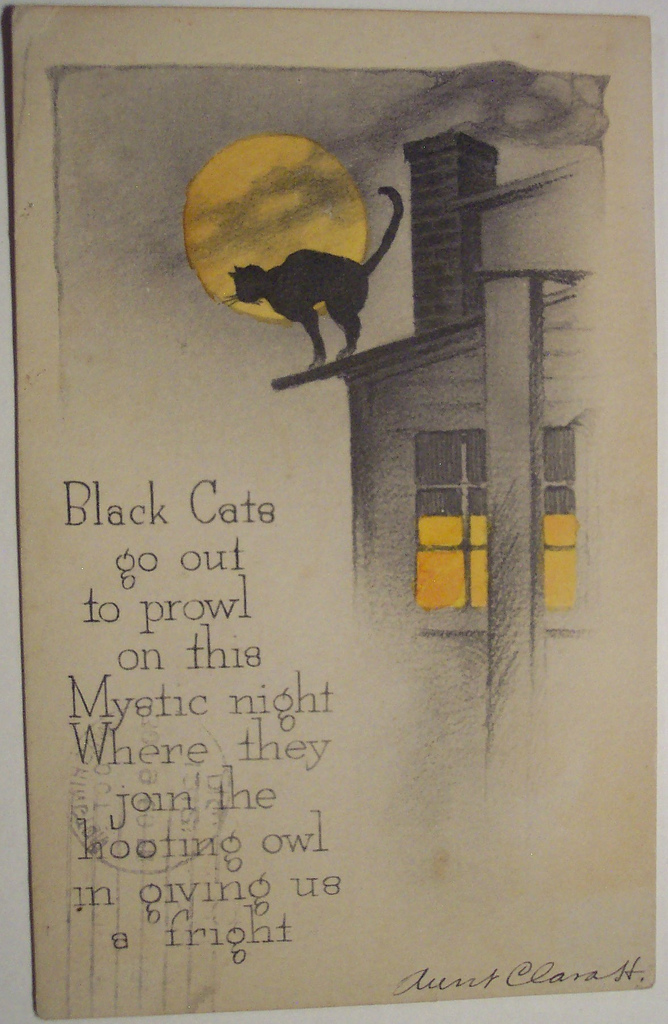 Black Cats
go out
to prowl
on this
Mystic night
Where they
join the
hooting owl
in giving us
a fright
Aunt Clara H.